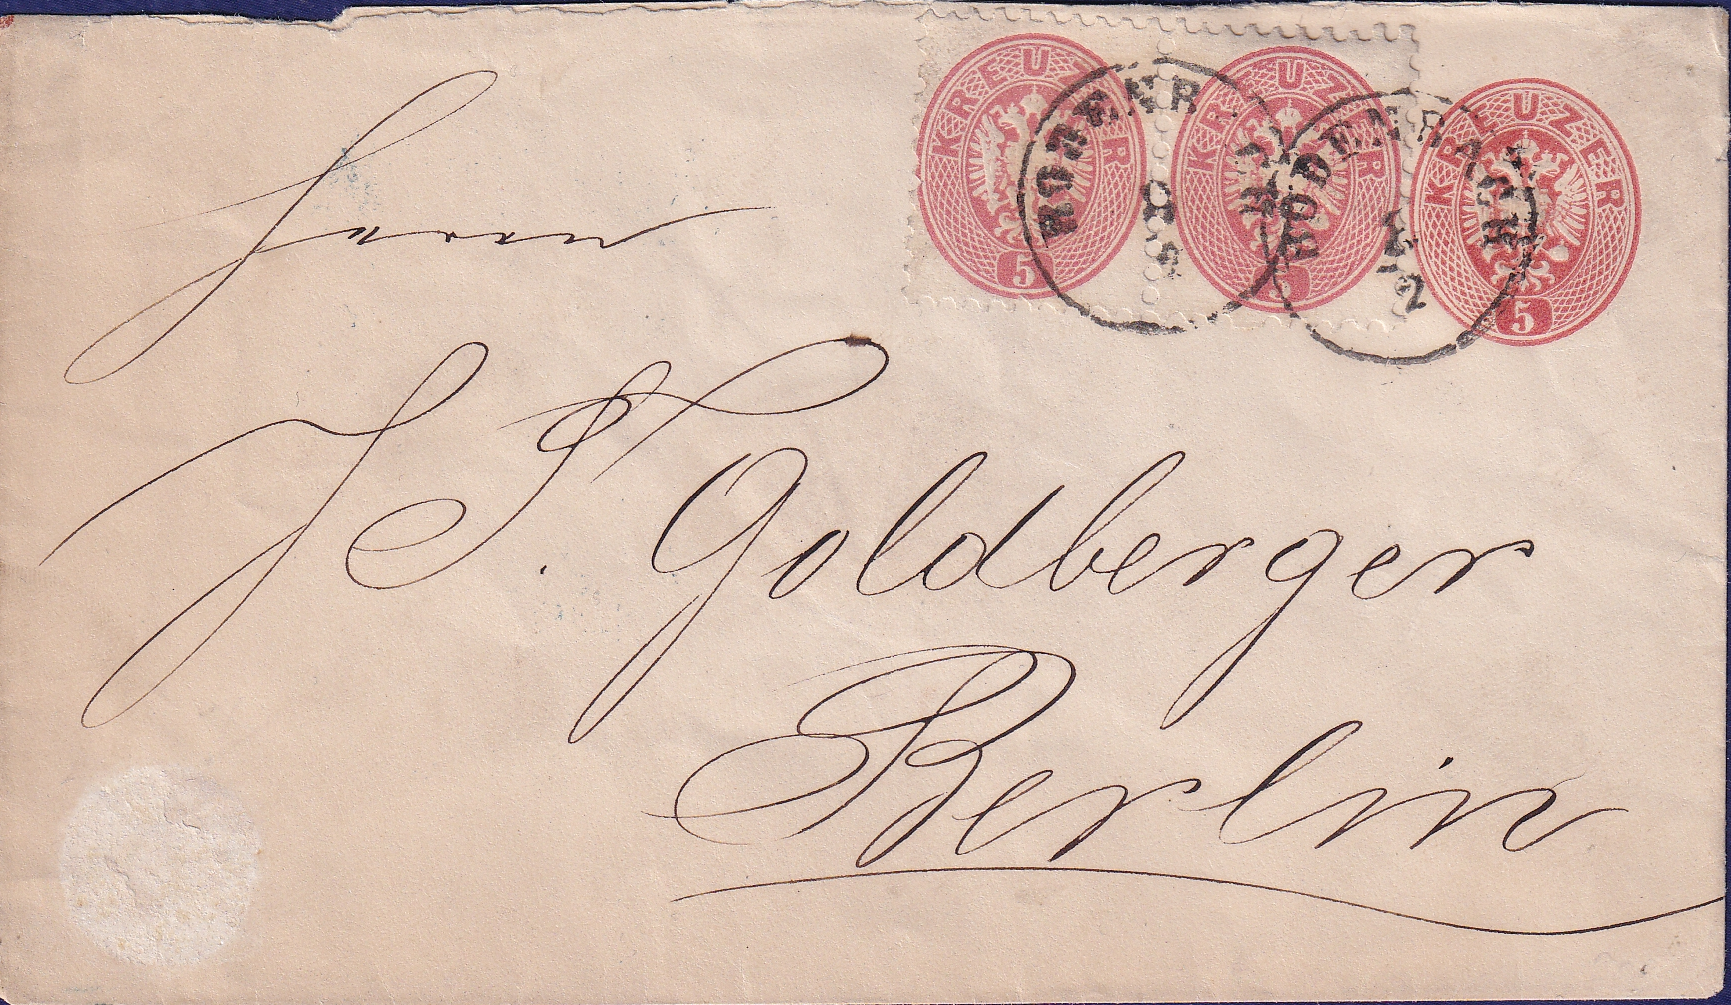 KREUZER 5
KREUZER 5
KREUZER 5
BODENBACH
BODENBACH
Herrn
J S. Goldberger
Berlin